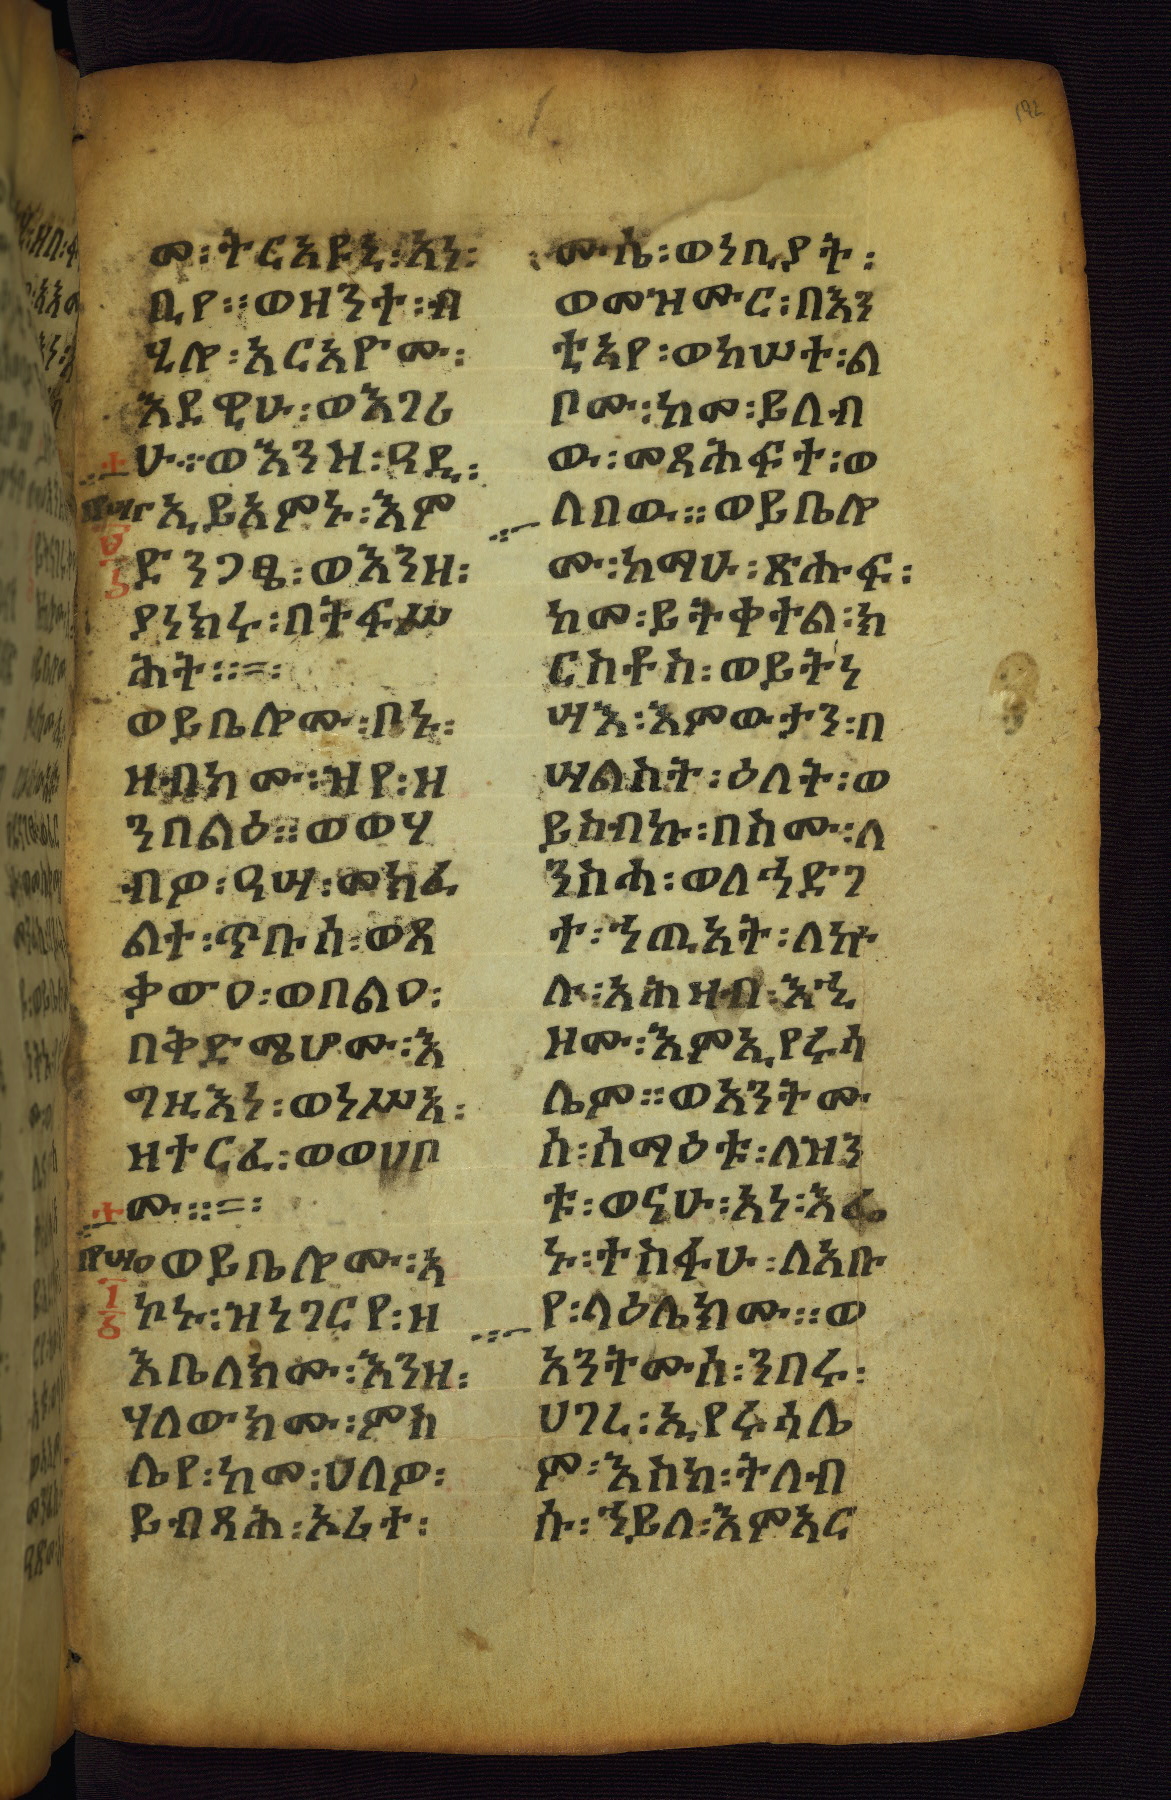 መ፡ትሬእዩኒ፡እነ፡
ቢየ፡፡ወዘንተ፡ብ
ሂሎ፡አርአዮሙ፡
እደዊሁ፡ወእገሪ
ሁ፡፡ወእንዝ፡ዓዲ፡
ኢይአምኑ፡እም
ድንጋፄ፡ወእንዘ፡
ያነክሩ፡በትፍሥ
ሕት፡፡=፡
ወይቤሎሙ፡ቦኑ፡
ዘብክሙ፡ዝየ፡ዘ
ንበልዕ፡፡ወወሃ
ብዎ፡ዓሣ፡መክፈ
ልተ፡ጥቡሰ፡ወጸ
ቃውዐ፡ወበልዐ፡
በቅድሜሆሙ፡እ
ግዚእነ፡ወነሥአ፡
ዘተርፈ፡ወወሀቦ
ሙ፡፡=፡
ወይቤሎሙ፡አ
ኮኑ፡ዝነገርየ፡ዘ
እቤለክሙ፡እንዘ፡
ሃለውክሙ፡ምስ
ሌየ፡ከመ፡ሀለዎ፡
ይብጻሕ፡ኦሪተ፡
ሙሴ፡ወነቢያት፡
ወመዝሙር፡በእን
ቲአየ፡ወከሠተ፡ል
ቦሙ፡ከመ፡ይለብ
ው፡መጻሕፍተ፡ወ
ለበው፡፡ወይቤሎ
ሙ፡ከማሁ፡ጽሑፍ፡
ከመ፡ይትቀተል፡ክ
ርስቶስ፡ወይትነ
ሣእ፡እምውታን፡በ
ሣልስት፡ዕለት፡ወ
ይሰብኩ፡በስሙ፡ለ
ንስሓ፡ወለኅድገ
ተ፡ኀጢአት፡ለኵ
ሉ፡አሕዛብ፡እኂ
ዘሙ፡እምኢየሩሳ
ሌም፡፡ወአንትሙ
ሰ፡ሰማዕቱ፡ለዝን
ቱ፡ወናሁ፡አነ፡እፌ
ኑ፡ተስፋሁ፡ለአቡ
የ፡ላዕሌክሙ፡፡ወ
አንትሙሰ፡ንበሩ፡
ሀገረ፡ኢየሩሳሌ
ም፡እስከ፡ትለብ
ሱ፡ኀይለ፡እምአር